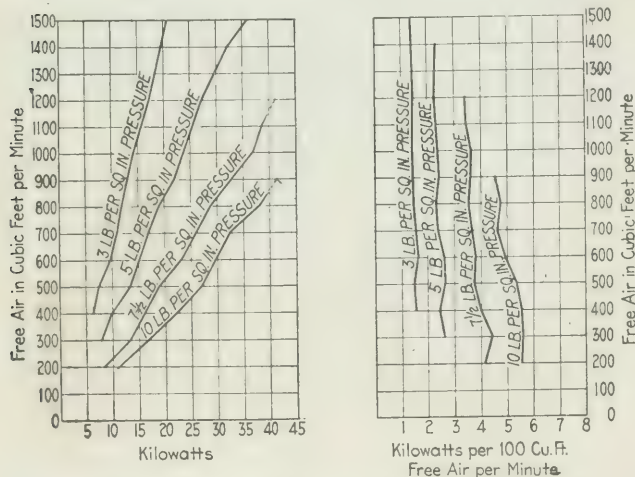 1500
1400
1300
1200
1100
1000
900
800
700
600
500
400
300
200
100
0
Free Air in Cubic Feet per Minute
3 LB. PER SQ. IN. PRESSURE
5 LB. PER SQ. IN. PRESSURE
7 1/2 LB. PER SQ. IN. PRESSURE
10 LB. PER SQ. IN. PRESSURE
5 10 15 20 25 30 35 40 45
Kilowatts
3 LB. PER SQ. IN. PRESSURE
5 LB. PER SQ. IN. PRESSURE
7 1/2 LB. PER SQ. IN. PRESSURE
10 LB. PER SQ. IN. PRESSURE
1500
1400
1300
1200
1100
1000
900
800
700
600
500
400
300
200
100
0
Free Air in Cubic Feet per Minute
1 2 3 4 5 6 7 8
Kilowatts per 100 Cu. Ft.
Free Air per Minute